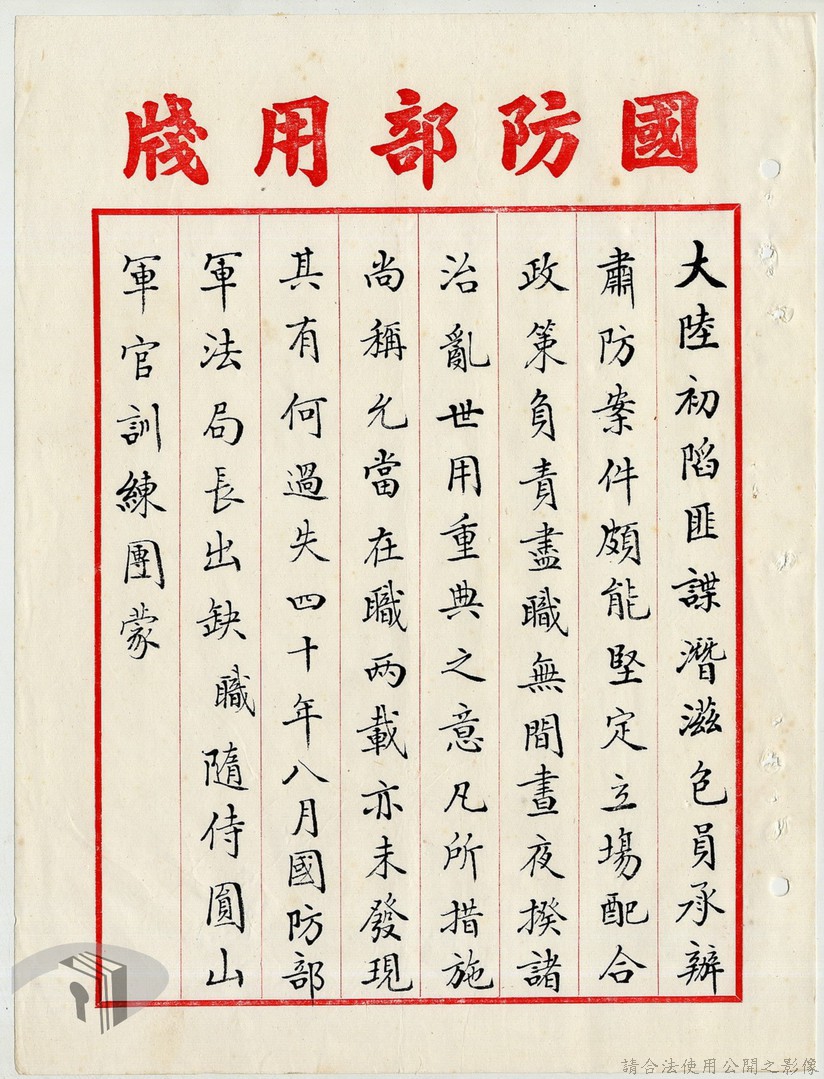 國防部用牋
大陸初陷匪諜潛滋包員承辦
肅防案件頗能堅定立場配合
政策負責盡職無間晝夜揆諸
治亂世用重典之意凡所措施
尚稱允當在職兩載亦未發現
其有何過失四十年八月國防部
軍法局長出缺職隨侍圓山
軍官訓練團蒙
請合法使用公開之影像